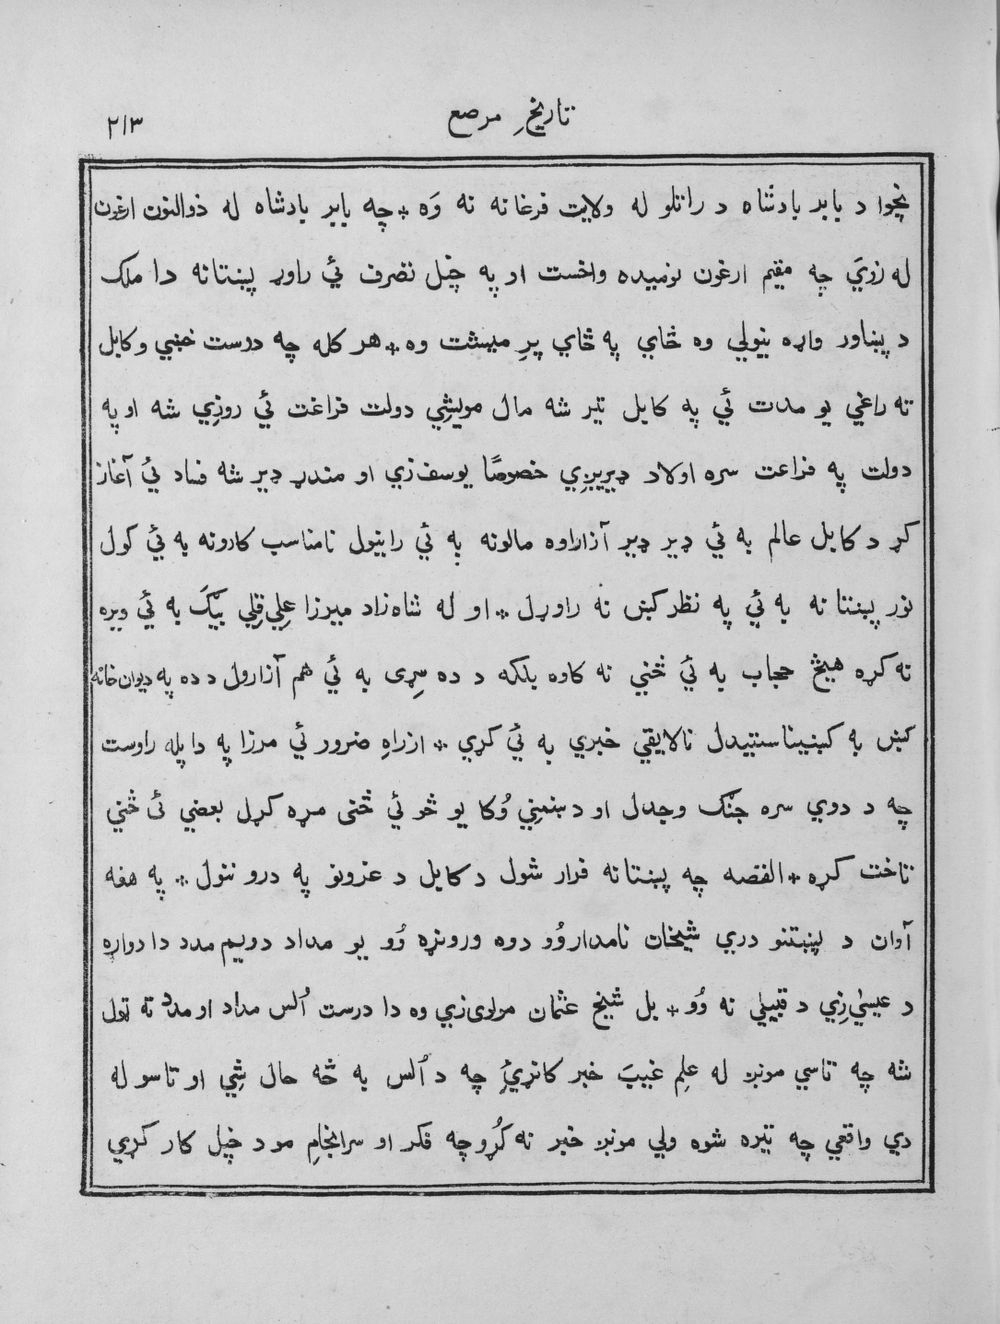 تاریخِ مرصع ۲۱۳
پخوا د بابر بادشاه د راتلو له ولایت فرغانه نه وَه * چه بابر بادشاه له ذوالنون ارغون
له زویَ چه مقیم ارغون نومیده واخست او په خپل تصرف ئي راوړ پښتانه دا ملک
د پښاور واړه نیولي وه ځاي په ځاي پرِ میشت وه * هر کله چه درست خښي و کابل
ته راغي یو مدت ئي په کابل تیر شه مال مویشِي دولت فراغت ئي روزِي شه او په
دولت په فراعت سره اولاد ډیریږِي خصوصًا یوسف‌زي او مندړ ډیر شه فساد ئي آغاز
کړ د کابل عالم به ئي ډیر ډیر آزاراوه مالونه به ئي رانیول نامناسب کارونه به ئي کول
نور پښتانه به ئي په نظر کښ نه راوړل * او له شاه‌زاد میرزا عِلي قِلي بیګَ به ئي ویره
نه کړه هیڅ حجاب به ئي څخي نه کاوه بلکه د ده سِړی به ئي هم آزارول د ده په دیوان‌خانه
کښ به کښیناستیدل نالایقي خبري به ئي کړي * ازراهِ ضرور ئي مرزا په دا پله راوست
چه د دوي سره جنګ وجدل او دښمنِي وُکا یو څو ئي څنی مړه کړل بعضي ئی څني
تاخت کړه * القصه چه پښتانه فرار شول د کابل د غرونو په درو ننول * په هغه
آوان د پښتنو دري شیخان نامدار وُو دوه وروڼړه وُو یو مداد دویم مدد دا دواړه
د عیسیٰ‌زِي د قبیلي نه وُو * بل شیخ عثمان مولوی‌زي وه دا درست اُلس مداد او مدد ته ټول
شه چه تاسي مونږ له علِم غیبَ خبر کانړئِ چه د اُلس به څه حال شِي او تاسو له
دي واقعي چه تیره شوه ولي مونږ خبر نه کُړو چه فکر او سرانجامِ مو د خپل کار کړي